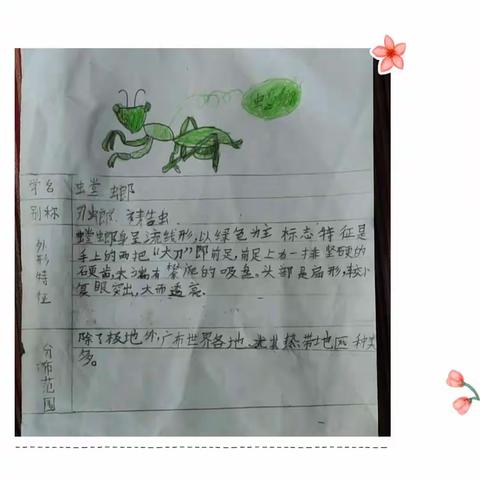 螳螂
学名 螳螂
别称 刀螂、祷告虫
外形特征 螳螂身呈流线形,以绿色为主 标志特征是
手上的两把“大刀”即前足,前足上有一排坚硬的
硬齿,末端有攀爬的吸盘。头部是扁形,
复眼突出,大而透亮.
分布范围 除了极地外,广布世界各地、热带地区种类
多。